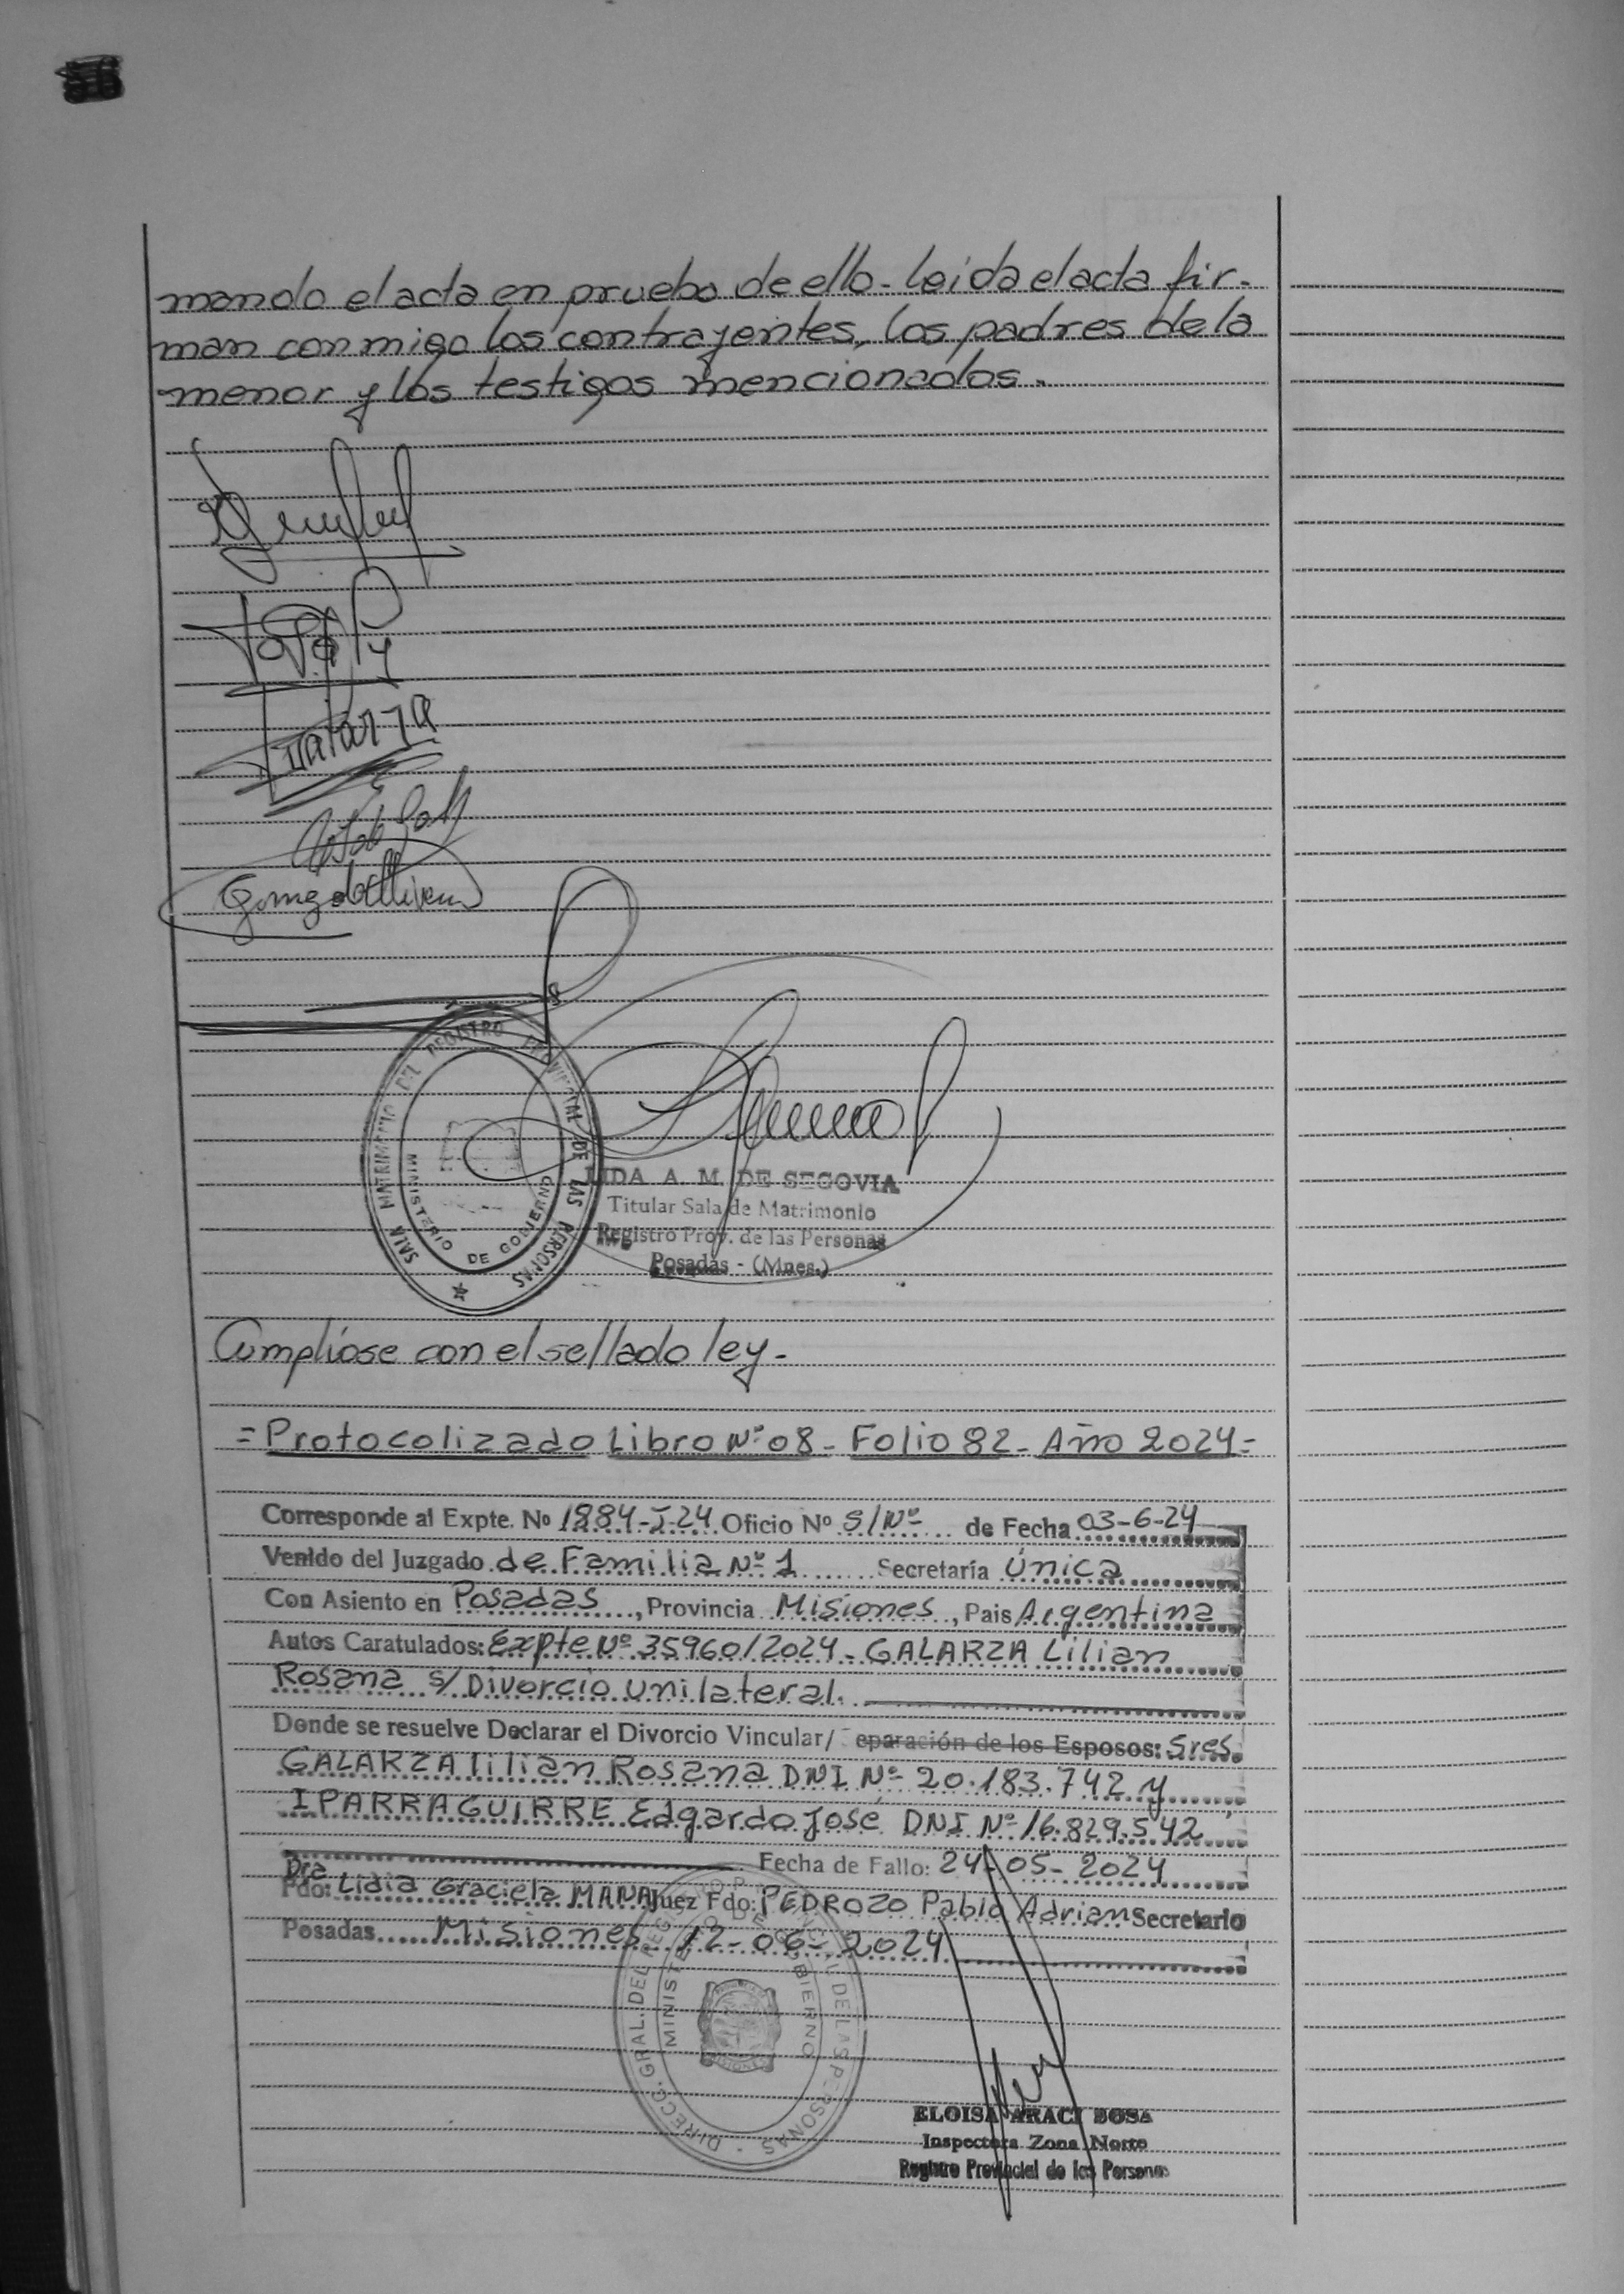 mando el acta en prueba de ello - leida el acta fir-
man conmigo los contrayentes, los padres de la
menor y los testigos mencionados.
Galarza
SALA MATRIMONIO DEL REGISTRO PROVINCIAL DE LAS PERSONAS
MINISTERIO DE GOBIERNO
LIDA A. M. DE SEGOVIA
Titular Sala de Matrimonio
Registro Prov. de las Personas
Posadas - (Mnes.)
Cumplíose con el sellado ley -
= Protocolizado Libro Nº 08 - Folio 82 - Año 2024 =
Corresponde al Expte. Nº 1884-I-24 Oficio Nº S/Nº de Fecha 03-6-24
Venido del Juzgado de Familia Nº 1 Secretaría Única
Con Asiento en Posadas, Provincia Misiones, Pais Argentina
Autos Caratulados: Expte Nº 35960/2024 - GALARZA Lilian
Rosana s/ Divorcio unilateral.
Donde se resuelve Declarar el Divorcio Vincular/ eparación de los Esposos: Sres.
GALARZA lilian Rosana DNI Nº 20.183.742 y
IPARRAGUIRRE Edgardo José DNI Nº 16.829.542
Fecha de Fallo: 24-05-2024
Dra
Fdo: Lidia Graciela MANA Juez Fdo: PEDROZO Pablo Adrian Secretario
Posadas Misiones 12-06-2024
DIRECC. GRAL. DEL REGISTRO PROVINCIAL DE LAS PERSONAS
MINISTERIO DE GOBIERNO
ELOISA ARACI BOSA
Inspectora Zona Norte
Registro Provincial de las Personas